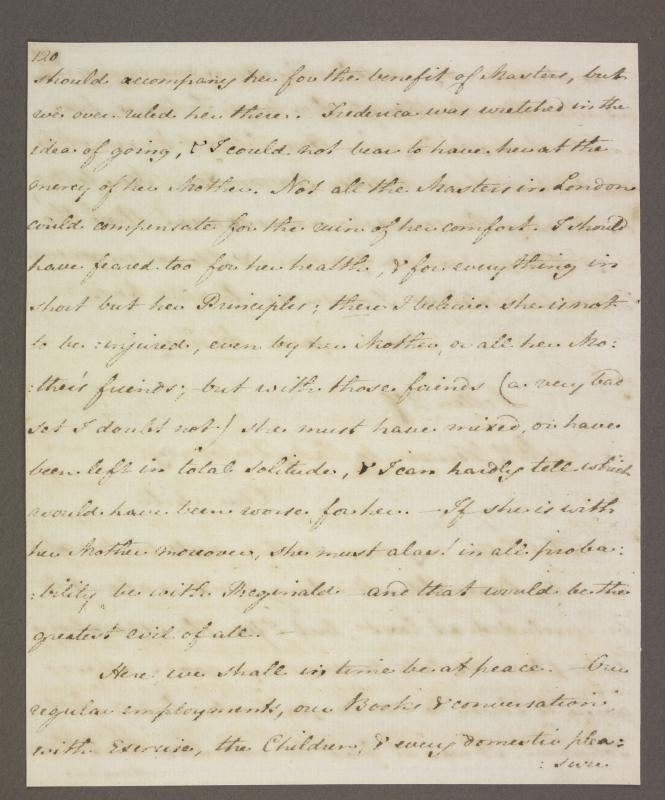 120
should accompany her for the benefit of Masters, but
we over-ruled her there. Frederica was wretched in the
idea of going, & I could not bear to have her at the
mercy of her Mother. Not all the Masters in London
could compensate for the ruin of her comfort. I should
have feared too for her health, & for everything in
short but her Principles; there I beleive she is not
to be injured, even by her Mother, or all her Mo:
:ther's friends; but with those friends (a very bad
set I doubt not) she must have mixed, or have
been left in total solitude, & I can hardly tell which
would have been worse for her. – If she is with
her Mother moreover, she must alas! in all proba:
:bility be with Reginald – and that would be the
greatest evil of all. –
Here we shall in time be at peace. – Our
regular employments, our Books & conversation
with Exercise, the Children, & every domestic plea:
:sure